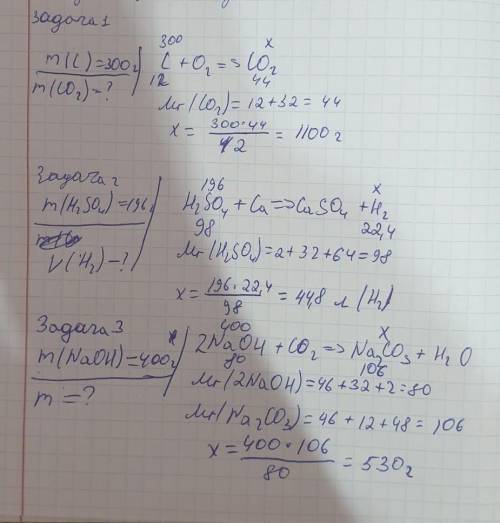 Задача 1
m(C)=300г
m(CO₂)=?
300 x
C + O₂ => CO₂
12 44
Mr(CO₂)=12+32=44
x = 300•44 / 12 = 1100г
Задача 2
m(H₂SO₄)=196г
V(H₂)-?
196 x
H₂SO₄ + Ca => CaSO₄ + H₂
98 22,4
Mr(H₂SO₄)=2+32+64=98
x = 196•22,4 / 98 = 44,8 л (H₂)
Задача 3
m(NaOH)=400г
m=?
400 x
2NaOH + CO₂ => Na₂CO₃ + H₂O
80 106
Mr(2NaOH)=46+32+2=80
Mr(Na₂CO₃)=46+12+48=106
x = 400•106 / 80 = 530г